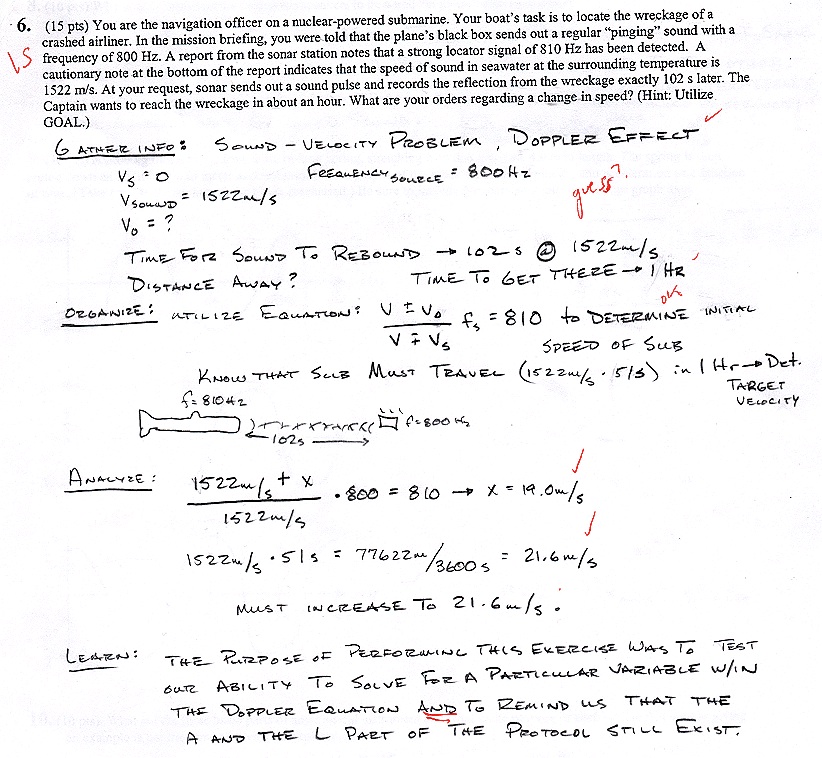 6. (15 pts) You are the navigation officer on a nuclear-powered submarine. Your boat's task is to locate the wreckage of a
crashed airliner. In the mission briefing, you were told that the plane's black box sends out a regular "pinging" sound with a
frequency of 800 Hz. A report from the sonar station notes that a strong locator signal of 810 Hz has been detected. A
cautionary note at the bottom of the report indicates that the speed of sound in seawater at the surrounding temperature is
1522 m/s. At your request, sonar sends out a sound pulse and records the reflection from the wreckage exactly 102 s later. The
Captain wants to reach the wreckage in about an hour. What are your orders regarding a change in speed? (Hint: Utilize
GOAL.)
15
GATHER INFO: SOUND - VELOCITY PROBLEM, DOPPLER EFFECT
VS = 0 FREQUENCY SOURCE = 800 Hz
guess?
VSOUND = 1522 m/s
VO = ?
TIME FOR SOUND TO REBOUND → 102 s @ 1522 m/s
DISTANCE AWAY? TIME TO GET THERE → 1 HR
OK
ORGANIZE: UTILIZE EQUATION: V ± VO / V ∓ VS fs = 810 to DETERMINE INITIAL
SPEED OF SUB
KNOW THAT SUB MUST TRAVEL (1522 m/s · 51s) in 1 Hr → Det.
TARGET
VELOCITY
f = 810 Hz
f = 800 Hz
102s
ANALYZE: 1522 m/s + X / 1522 m/s · 800 = 810 → X = 19.0 m/s
1522 m/s · 51s = 77622 m/3600 s = 21.6 m/s
MUST INCREASE TO 21.6 m/s.
LEARN: THE PURPOSE OF PERFORMING THIS EXERCISE WAS TO TEST
OUR ABILITY TO SOLVE FOR A PARTICULAR VARIABLE W/IN
THE DOPPLER EQUATION AND TO REMIND US THAT THE
A AND THE L PART OF THE PROTOCOL STILL EXIST.